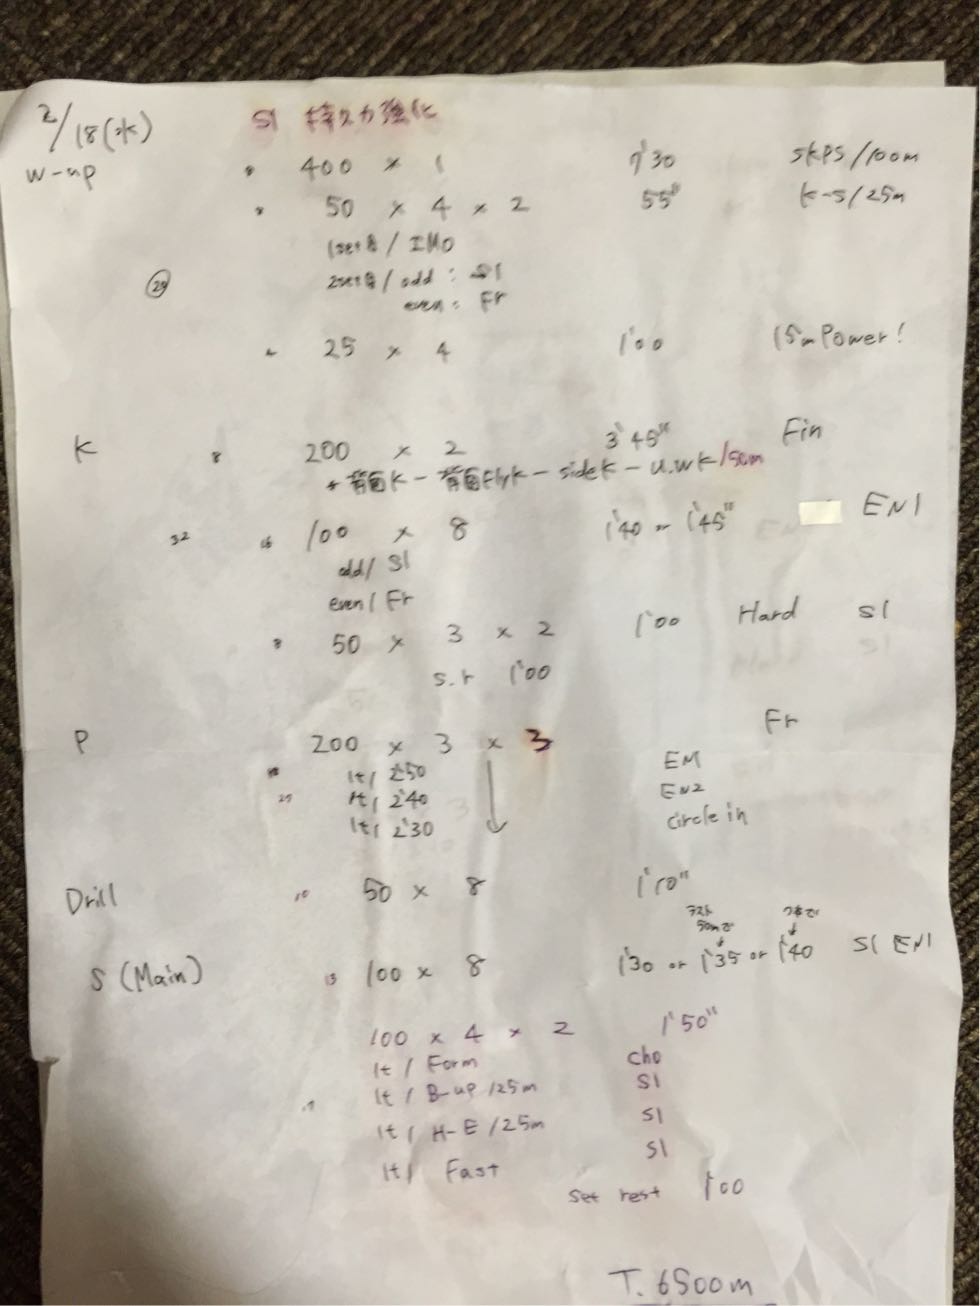 2/18(水) S1 持久力強化
W-up 400 × 1 7'30 SKPS/100m
50 × 4 × 2 55" K-S/25m
1set目/ IMO
2set目/ odd : S1
29 even : Fr
25 × 4 1'00 15m Power!
K 8 200 × 2 3'45" Fin
* 背面K - 背面FlyK - sideK - u.w K/50m
32 16 100 × 8 1'40 or 1'45" EN1
odd/ S1
even/ Fr
8 50 × 3 × 2 1'00 Hard S1
S.r 1'00
P 200 × 3 × 3 Fr
1t/ 2'50 EN1
1t/ 2'40 EN2
1t/ 2'30 circle in
Drill 10 50 × 8 1'10"
ラスト
50mで
S (Main) 13 100 × 8 1'30 or 1'35 or 1'40 S1 EN1
100 × 4 × 2 1'50"
1t / Form cho
1t / B-up /25m S1
1t / H-E /25m S1
1t / Fast S1
Set rest 1'00
T. 6500m